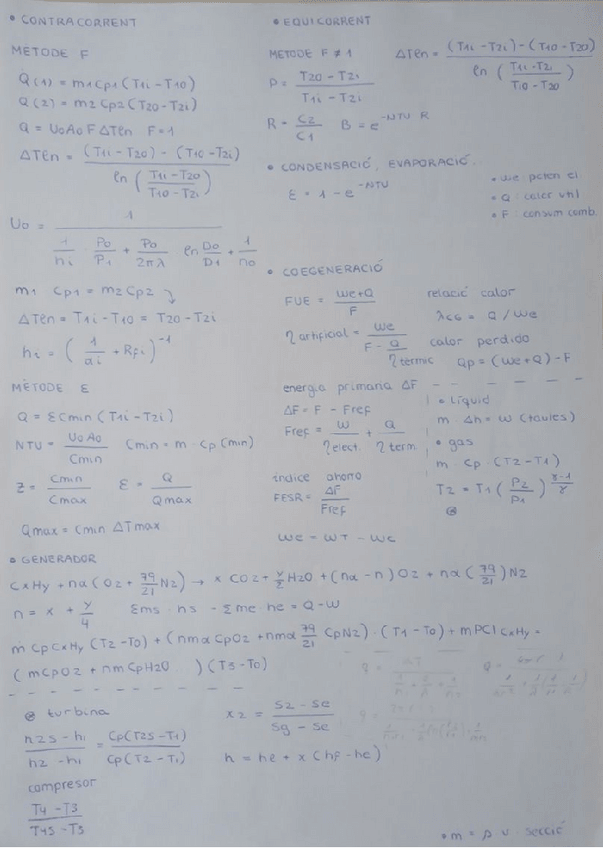 • CONTRACORRENT
METODE F
Q(1) = m1 Cp1 (T1i - T10)
Q(2) = m2 Cp2 (T20 - T2i)
Q = U0 A0 F ΔTln F = 1
ΔTln = (T1i - T20) - (T10 - T2i) / ln (T1i - T20 / T10 - T2i)
U0 = 1 / (1/hi · P0/P1 + P0/2πλ ln D0/D1 + 1/h0)
m1 Cp1 = m2 Cp2
ΔTln = T1i - T10 = T20 - T2i
hi = (1/ai + RFi)^-1
MÈTODE ε
Q = ε Cmin (T1i - T2i)
NTU = U0 A0 / Cmin Cmin = m · Cp (min)
Z = Cmin / Cmax ε = Q / Qmax
Qmax = Cmin ΔTmax
• EQUICORRENT
METODE F ≠ 1
ΔTln = (T1i - T2i) - (T10 - T20) / ln (T1i - T2 / T10 - T20)
P = T20 - T2i / T1i - T2i
R = C2 / C1 B = e^-NTU R
• CONDENSACIÓ, EVAPORACIÓ.
ε = 1 - e^-NTU
• We poten el
= Q calor util
= F: consum comb.
• COEGENERACIÓ
FUE = We+Q / F
relació calor
λCG = Q / We
η artificial = We / (F - Q / η termic)
calor perdido
Qp = (We + Q) - F
energia primaria ΔF
ΔF = F - Fref
Fref = W / η elect. + Q / η term.
índice ahorro
FESR = ΔF / Fref
We = WT - Wc
• líquid
m Δh = W (taules)
• gas
m Cp · (T2 - T1)
T2 = T1 (P2 / P1)^γ-1/γ
• GENERADOR
CxHy + nα (O2 + 79/21 N2) → x CO2 + y/2 H2O + (nα - n) O2 + nα (79/21) N2
n = x + y/4 Σms · hs - Σme · he = Q - W
m CpCxHy (T2 - T0) + (nmα CpO2 + nmα 79/21 CpN2) · (T1 - T0) + mPCI CxHy =
(mCpO2 + nm CpH2O ) (T5 - T0)
turbina
h2s - h1 / h2 - h1 = Cp(T2s - T1) / Cp(T2 - T1)
x2 = S2 - Se / Sg - Se
h = he + x (hf - he)
compresor
T4 - T3 / T4s - T3
• m = ρ v · secció